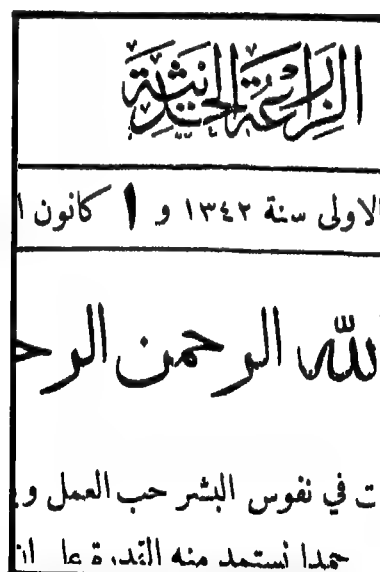 الزراعة الحديثة
الاولى سنة ١٣٤٢ و ١ كانون
لله الرحمن الرح
ت في نفوس البشر حب العمل و
حمدا نستمد منه القدرة على ان